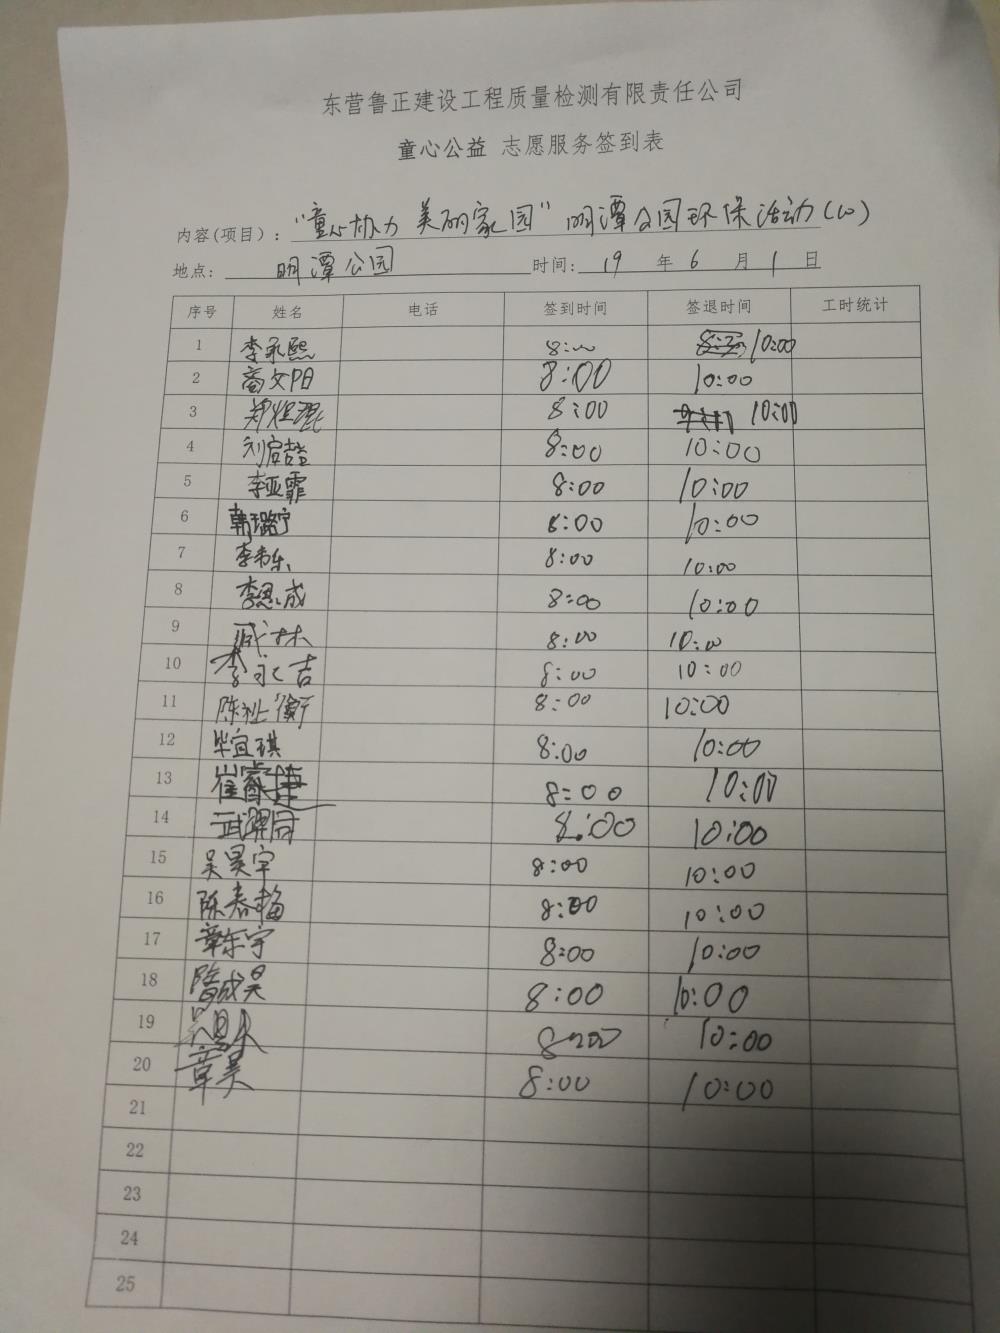 东营鲁正建设工程质量检测有限责任公司
童心公益 志愿服务签到表
内容(项目)： "童心协力 美丽家园" 明潭公园环保活动(10)
地点： 明潭公园 时间: 19 年 6 月 1 日
序号 姓名 电话 签到时间 签退时间 工时统计
1 李承熙 8:00 10:00
2 商文阳 8:00 10:00
3 郑煜琨 8:00 10:00
4 刘启喆 8:00 10:00
5 李亚霏 8:00 10:00
6 韩璐宁 8:00 10:00
7 李韦乐 8:00 10:00
8 李思成 8:00 10:00
9 臧林 8:00 10:00
10 李永吉 8:00 10:00
11 陈祉衡 8:00 10:00
12 毕宜琪 8:00 10:00
13 崔睿捷 8:00 10:00
14 武翠同 8:00 10:00
15 吴昊宇 8:00 10:00
16 陈春梅 8:00 10:00
17 章乐宇 8:00 10:00
18 隋成昊 8:00 10:00
19 8:00 10:00
20 章昊 8:00 10:00
21
22
23
24
25